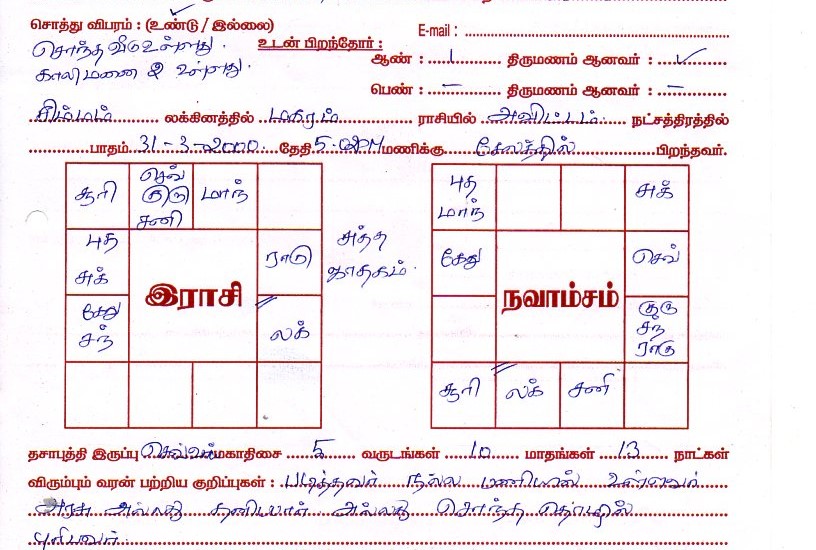 சொத்து விபரம் : (உண்டு / இல்லை)
E-mail :
சொந்த வீடு உள்ளது.
உடன் பிறந்தோர் :
ஆண் : 1 திருமணம் ஆனவர் : ✓
காலிமனை 2 உள்ளது.
பெண் : – திருமணம் ஆனவர் : –
சிம்மம் லக்கினத்தில் மகரம் ராசியில் அவிட்டம் நட்சத்திரத்தில்
பாதம் 31-3-2000 தேதி மணிக்கு சேலத்தில் பிறந்தவர்.
சூரி
செவ் குரு சனி
மாந்
புத சுக்
ராகு
கேது சந்
லக்
இராசி
சுத்த
ஜாதகம்.
புத மாந்
சுக்
கேது
செவ்
குரு சந் ராகு
சூரி
லக்
சனி
நவாம்சம்
தசாபுத்தி இருப்பு செவ்வாய் மகாதிசை 5 வருடங்கள் 10 மாதங்கள் 13 நாட்கள்
விரும்பும் வரன் பற்றிய குறிப்புகள் : படித்தவர் நல்ல பணியில் உள்ளவர்
அரசு அல்லது தனியார் அல்லது சொந்த தொழில்
புரிபவர்